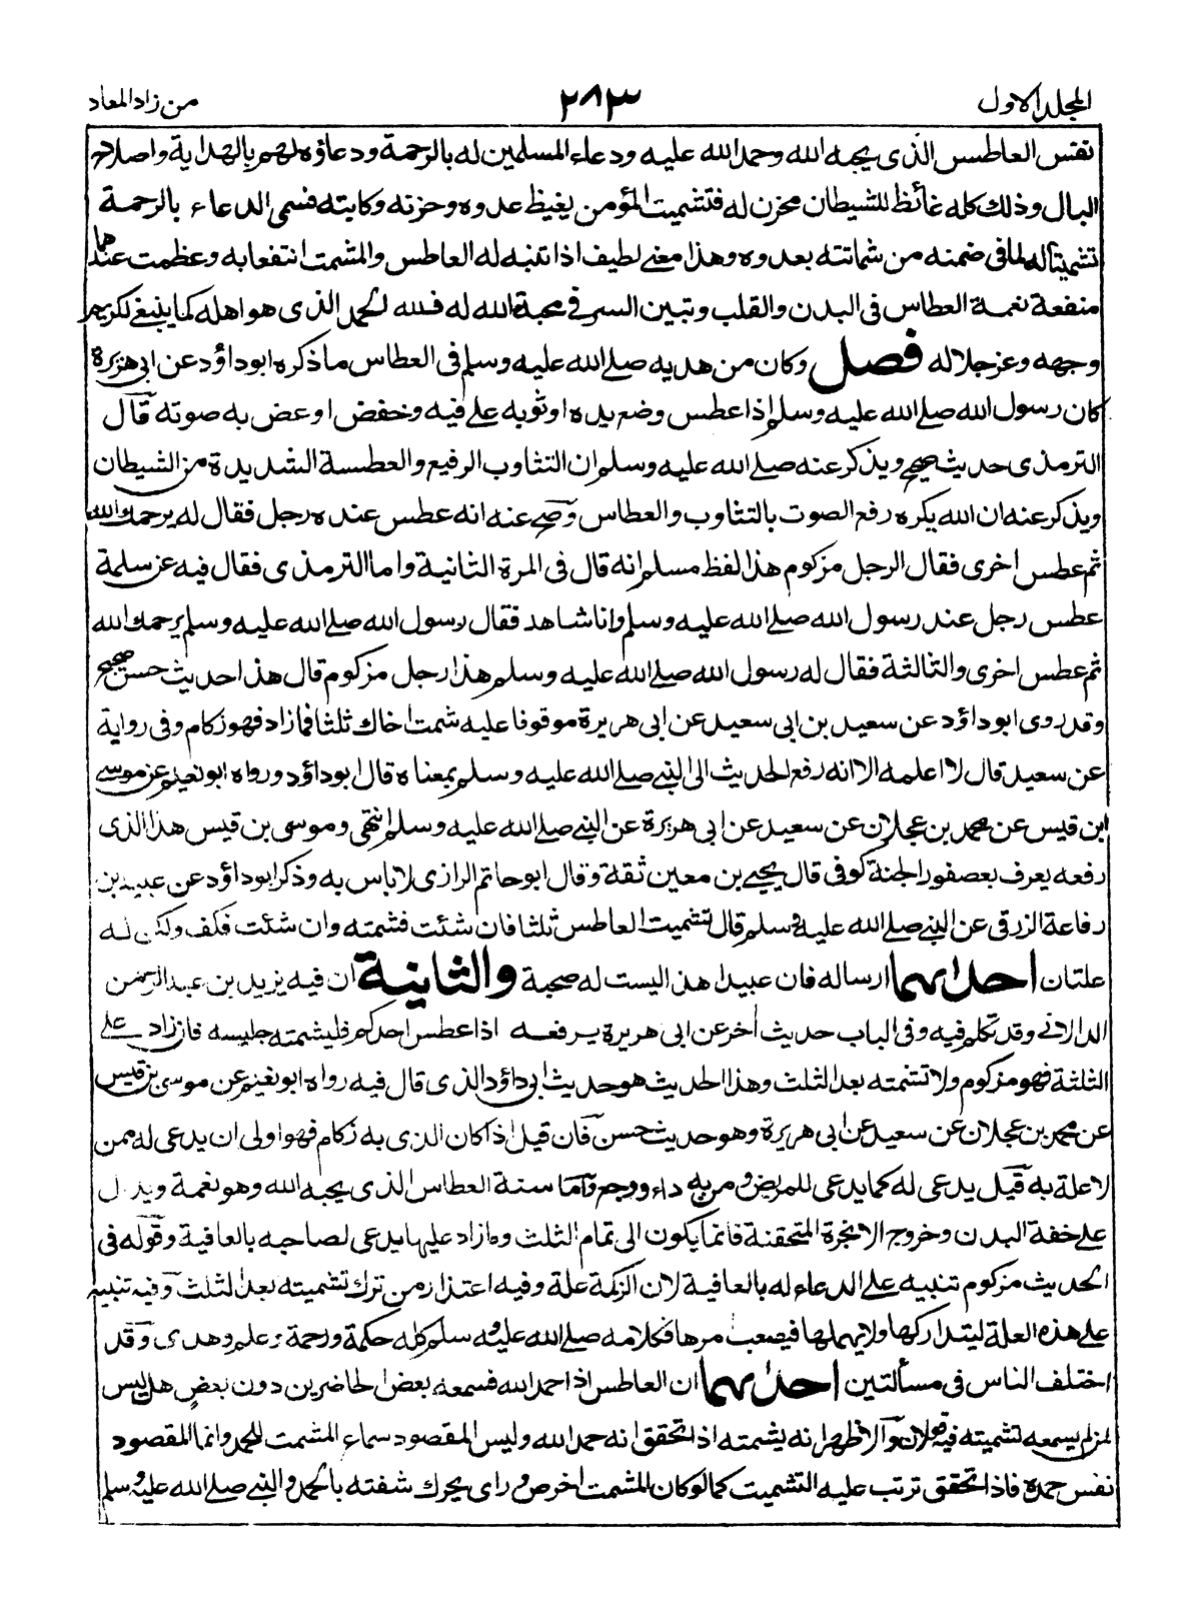 المجلد الاول ٢٨٣ من زاد المعاد
نفس العاطس الذى يحبه الله وحمد الله عليه ودعاء المسلمين له بالرحمة ودعاؤه لهم بالهداية واصلاح
البال وذلك كله غائظ للشيطان محزن له فتشميت المؤمن يغيظ عدوه وحزنه وكابته فسمى الدعاء بالرحمة
تشميتا له لما فى ضمنه من شماتته بعدوه وهذا معنى لطيف اذا تنبه له العاطس والمشمت انتفعا به وعظمت عندهما
منفعة نعمة العطاس فى البدن والقلب وتبين السر فى محبة الله له فلله الحمد الذى هو اهله كما ينبغى لكريم
وجهه وعز جلاله فصل وكان من هديه صلى الله عليه وسلم فى العطاس ما ذكره ابوداؤد عن ابى هريرة
كان رسول الله صلى الله عليه وسلم اذا عطس وضع يده او ثوبه على فيه وخفض او غض به صوته قال
الترمذى حديث صحيح ويذكر عنه صلى الله عليه وسلم ان التثاوب الرفيع والعطسة الشديدة من الشيطان
ويذكر عنه ان الله يكره رفع الصوت بالتثاوب والعطاس وصح عنه انه عطس عنده رجل فقال له يرحمك الله
ثم عطس اخرى فقال الرجل مزكوم هذا لفظ مسلم انه قال فى المرة الثانية واما الترمذى فقال فيه عن سلمة
عطس رجل عند رسول الله صلى الله عليه وسلم وانا شاهد فقال رسول الله صلى الله عليه وسلم يرحمك الله
ثم عطس اخرى والثالثة فقال له رسول الله صلى الله عليه وسلم هذا رجل مزكوم قال هذا حديث حسن صحيح
وقد روى ابوداؤد عن سعيد بن ابى سعيد عن ابى هريرة موقوفا عليه شمت اخاك ثلثا فما زاد فهو زكام وفى رواية
عن سعيد قال لا اعلمه الا انه رفع الحديث الى النبى صلى الله عليه وسلم بمعناه قال ابوداؤد ورواه ابو نعيم عن موسى
ابن قيس عن محمد بن عجلان عن سعيد عن ابى هريرة عن النبى صلى الله عليه وسلم انتهى وموسى بن قيس هذا الذى
رفعه يعرف بعصفور الجنة كوفى قال يحيى بن معين ثقة وقال ابوحاتم الرازى لا باس به وذكر ابوداؤد عن عبيد بن
رفاعة الزرقى عن النبى صلى الله عليه وسلم قال تشميت العاطس ثلثا فان شئت فشمته وان شئت فكف ولكن له
علتان احدٰىهما ارساله فان عبيدا هذا ليست له صحبة والثانية ان فيه يزيد بن عبد الرحمن
الدالانى وقد تكلم فيه وفى الباب حديث أخر عن ابى هريرة يرفعه اذا عطس احدكم فليشمته جليسه فان زاد على
الثلثة فهو مزكوم ولا تشمته بعد الثلث وهذا الحديث هو حديث ابى داؤد الذى قال فيه رواه ابو نعيم عن موسى بن قيس
عن محمد بن عجلان عن سعيد عن ابى هريرة وهو حديث حسن فان قيل اذا كان الذى به زكام فهو اولى ان يدعى له ممن
لا علة به قيل يدعى له كما يدعى للمريض ومن به داء ووجع واما سنة العطاس الذى يحبه الله وهو نعمة ويدل
على خفة البدن وخروج الابخرة المحتقنة فانما يكون الى تمام الثلث وما زاد عليها يدعى لصاحبه بالعافية وقوله فى
الحديث مزكوم تنبيه على الدعاء له بالعافية لان الزكمة علة وفيه اعتذار من ترك تشميته بعد الثلث وفيه تنبيه
على هذه العلة ليتداركها ولا يهملها فيصعب امرها فكلامه صلى الله عليه وسلم كله حكمة ورحمة وعلم وهدى وقد
اختلف الناس فى مسألتين احدٰىهما ان العاطس اذا حمد الله فسمعه بعض الحاضرين دون بعض هل يسن
لمن لم يسمعه تشميته فيه قولان والاظهر انه يشمته اذا تحقق انه حمد الله وليس المقصود سماع المشمت للحمد وانما المقصود
نفس حمده فاذا تحقق ترتب عليه التشميت كما لو كان المشمت اخرص وراى يحرك شفته بالحمد والنبى صلى الله عليه وسلم